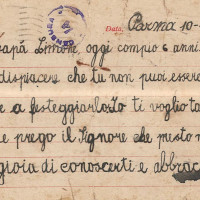 CENSURA
Data, Parma 10-
papà Simone, oggi compio 6 anni
dispiacere che tu non puoi essere
e a festeggiarlo Io ti voglio ta
e prego il Signore che presto
gioia di conoscerti e abbrac